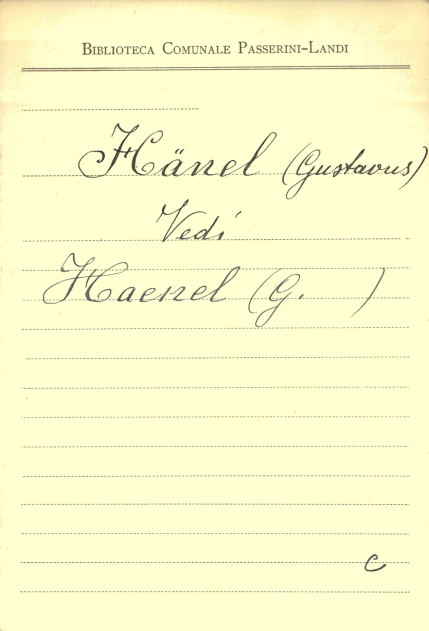 BIBLIOTECA COMUNALE PASSERINI-LANDI
Hänel (Gustavus)
Vedi
Haenel (G. )
C